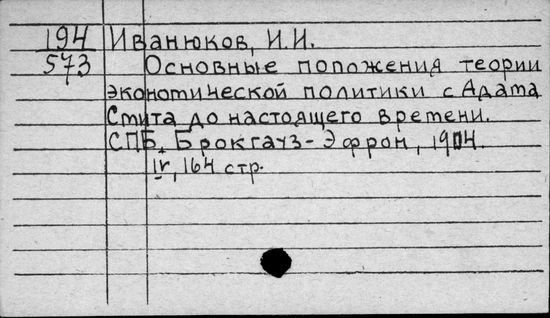 194 Иванюков, И.И.
573 Основные положения теории
экономической политики с Адама
Смита до настоящего времени.
СПБ, Брокгауз-Эфрон, 1904.
IV, 164 стр.